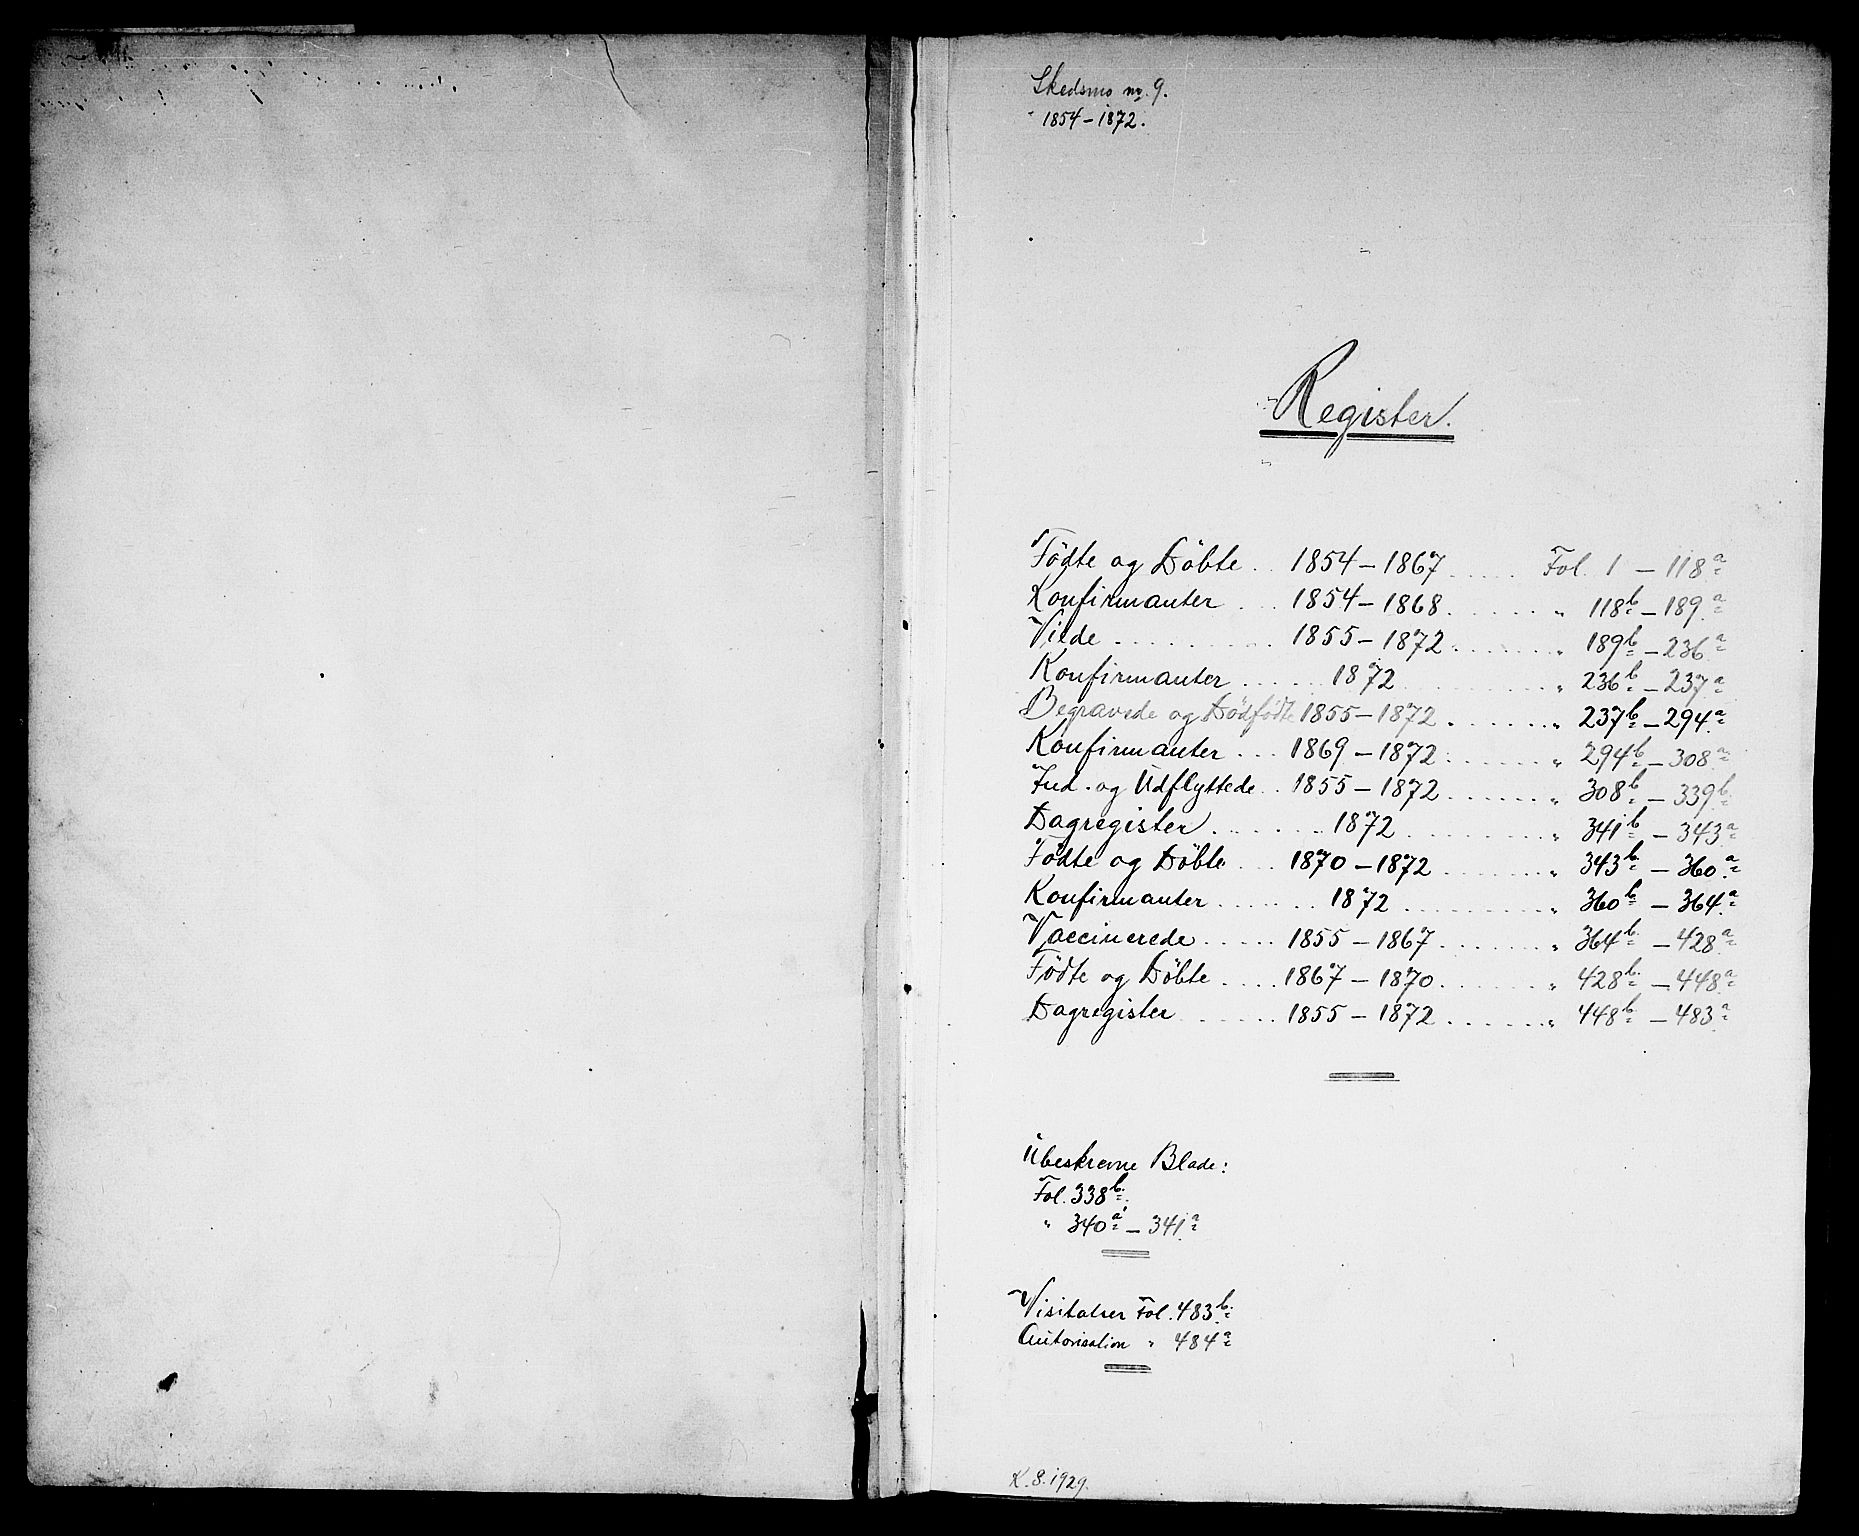 Skedsmo nr. 9.
1854–1872.
Register.
Födte og Döbte .. 1854–1867 ..... Fol. 1 – 118a
Konfirmanter ... 1854–1868 ....... " 118b – 189a
Viede .......... 1855–1872 ....... " 189b – 236a
Konfirmanter ...... 1872 ........ " 236b – 237a
Begravede og Dödfödte 1855–1872 ....... " 237b – 294a
Konfirmanter ... 1869–1872 ....... " 294b – 308a
Ind- og Udflyttede .. 1855–1872 ....... " 308b – 339b
Dagregister ....... 1872 ......... " 341b – 343a
Födte og Döbte ... 1870–1872 ....... " 343b – 360a
Konfirmanter ....... 1872 ......... " 360b – 364a
Vaccinerede ..... 1855–1867 ....... " 364b – 428a
Födte og Döbte .... 1867–1870 ....... " 428b – 448a
Dagregister ...... 1855–1872 ....... " 448b – 483a
Ubeskrevne Blade:
Fol. 338b
" 340a – 341a
Visitatser Fol. 483b
Autorisation " 484a
K. 8. 1929.